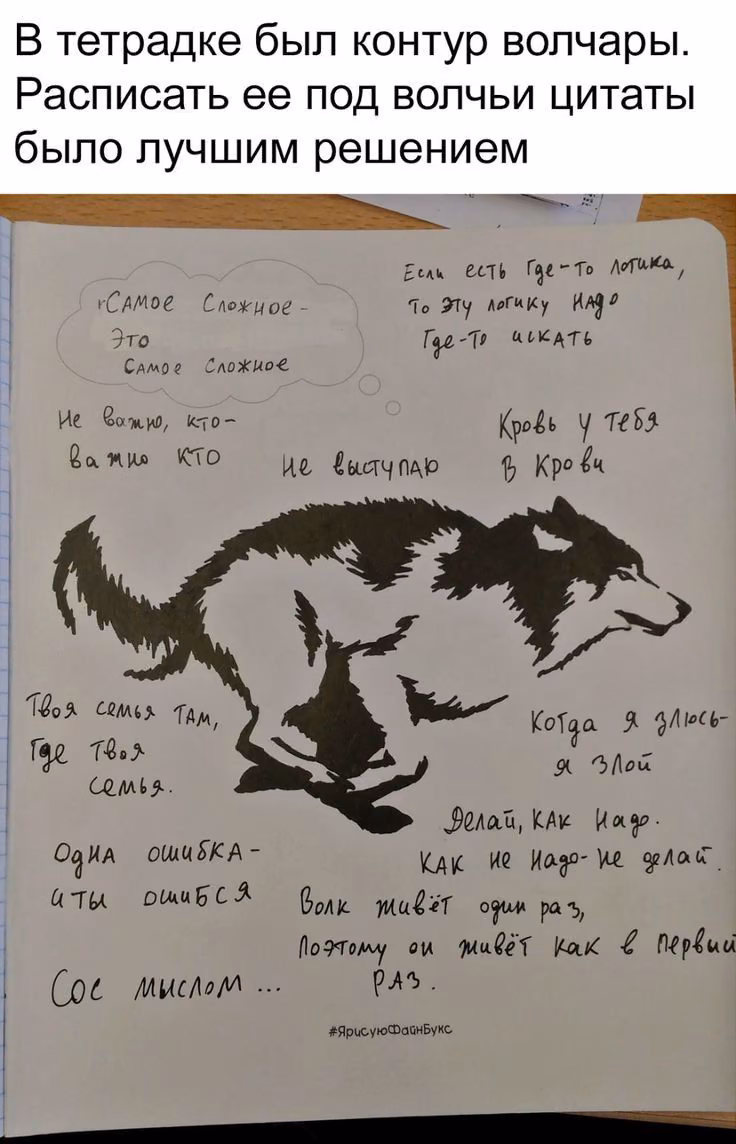 В тетрадке был контур волчары.
Расписать ее под волчьи цитаты
было лучшим решением
Самое Сложное -
Это
Самое Сложное
Если есть Где-то логика,
То эту логику надо
Где-то искать
Не важно, кто-
важно КТО
Не выступаю
Кровь у тебя
В Крови
Твоя семья там,
Где твоя
семья.
Когда я злюсь-
я злой
Делай, как надо.
Как не надо-не делай.
Одна ошибка-
и ты ошибся
Волк живёт один раз,
Поэтому он живёт как в первый
раз.
Сос мыслом ...
#ЯрисуюФайнБукс